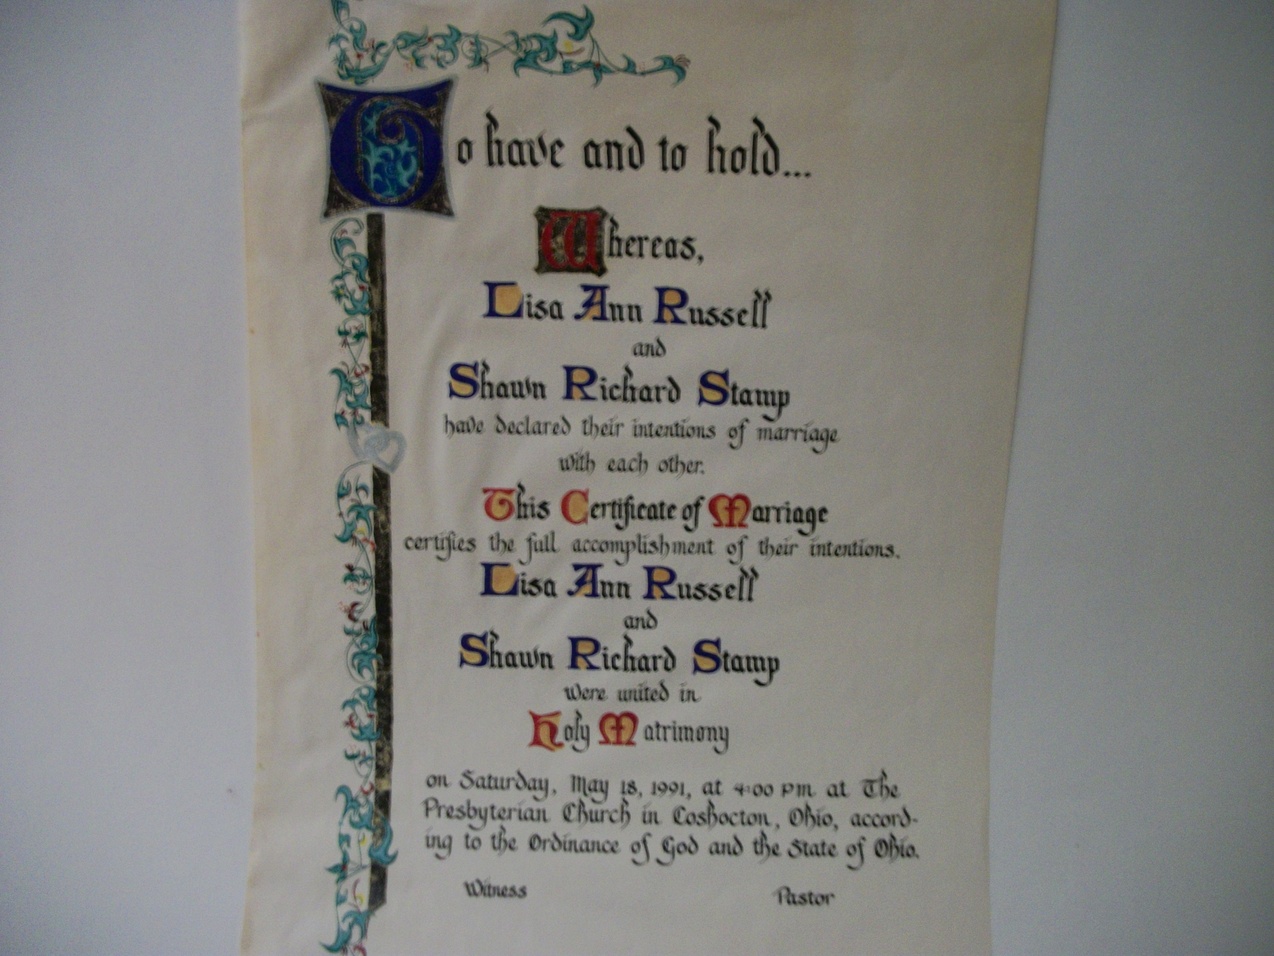 To have and to hold...
Whereas,
Lisa Ann Russell
and
Shawn Richard Stamp
have declared their intentions of marriage
with each other.
This Certificate of Marriage
certifies the full accomplishment of their intentions.
Lisa Ann Russell
and
Shawn Richard Stamp
were united in
Holy Matrimony
on Saturday, May 18, 1991, at 4:00 PM at The
Presbyterian Church in Coshocton, Ohio, accord-
ing to the Ordinance of God and the State of Ohio.
Witness Pastor